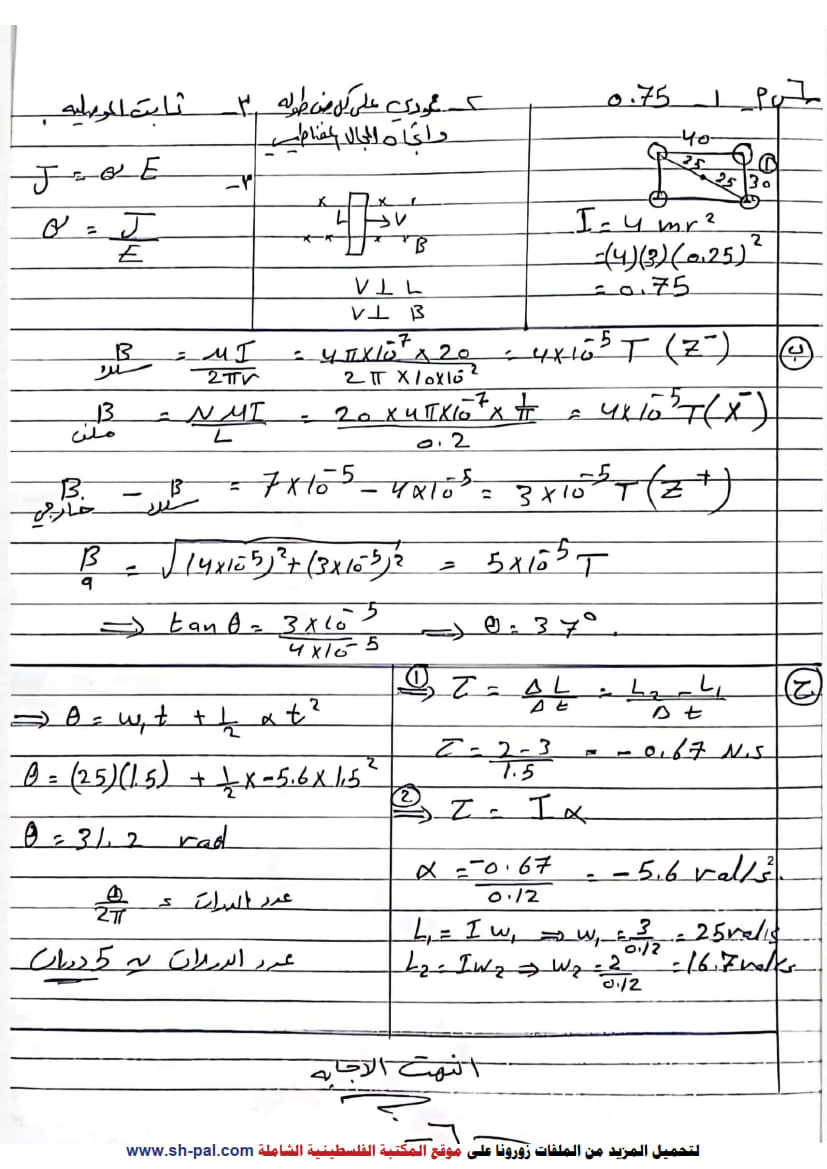 0.75 -1
40
25
25
30
I = 4 mr²
= (4)(3)(0.25)²
= 0.75
2- عمودي على كل من طوله
واتجاه المجال المغناطيسي
x x
L V
x x x B
V ⊥ L
V ⊥ B
3- ثابت الموصلية.
3-
J = σ E
σ = J / E
ب
B سلك = μI / 2πr = 4π×10⁻⁷ × 20 / 2π × 10×10⁻² = 4×10⁻⁵ T (Z⁻)
B ملف = NμI / L = 20 × 4π×10⁻⁷ × 1/π / 0.2 = 4×10⁻⁵ T (X⁻)
B خارجي - B سلك = 7×10⁻⁵ - 4×10⁻⁵ = 3×10⁻⁵ T (Z⁺)
B a = √(4×10⁻⁵)² + (3×10⁻⁵)² = 5×10⁻⁵ T
⇒ tan θ = 3×10⁻⁵ / 4×10⁻⁵ ⇒ θ = 37°.
ج
① ⇒ τ = ΔL / Δt = L₂ - L₁ / Δt
τ = 2-3 / 1.5 = -0.67 N.s
② ⇒ τ = I α
α = -0.67 / 0.12 = -5.6 rad/s².
L₁ = I w₁ ⇒ w₁ = 3 / 0.12 = 25 rad/s
L₂ = I w₂ ⇒ w₂ = 2 / 0.12 = 16.7 rad/s
⇒ θ = w₁t + 1/2 α t²
θ = (25)(1.5) + 1/2 × -5.6 × 1.5²
θ = 31.2 rad
عدد الدورات = θ / 2π
عدد الدورات ≈ 5 دورات
انتهت الاجابه
-6-
لتحميل المزيد من الملفات زورونا على موقع المكتبة الفلسطينية الشاملة www.sh-pal.com